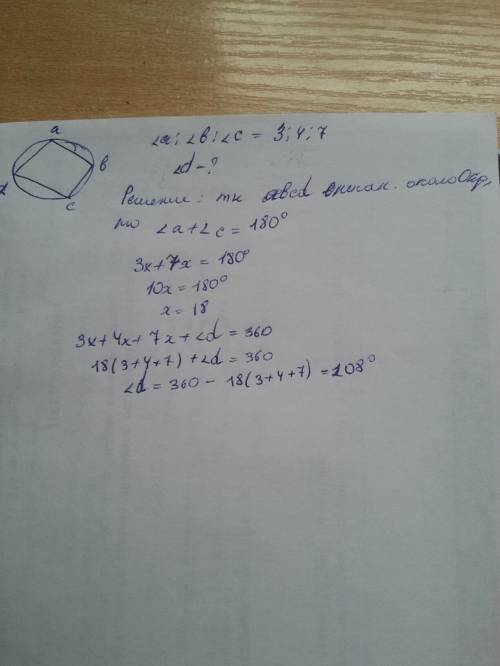 a
b
c
d
∠a; ∠b; ∠c = 3; 4; 7
∠d - ?
Решение: тк abcd вписан. около Окр,
то ∠a + ∠c = 180°
3x + 7x = 180°
10x = 180°
x = 18
3x + 4x + 7x + ∠d = 360
18(3+4+7) + ∠d = 360
∠d = 360 - 18(3+4+7) = 108°